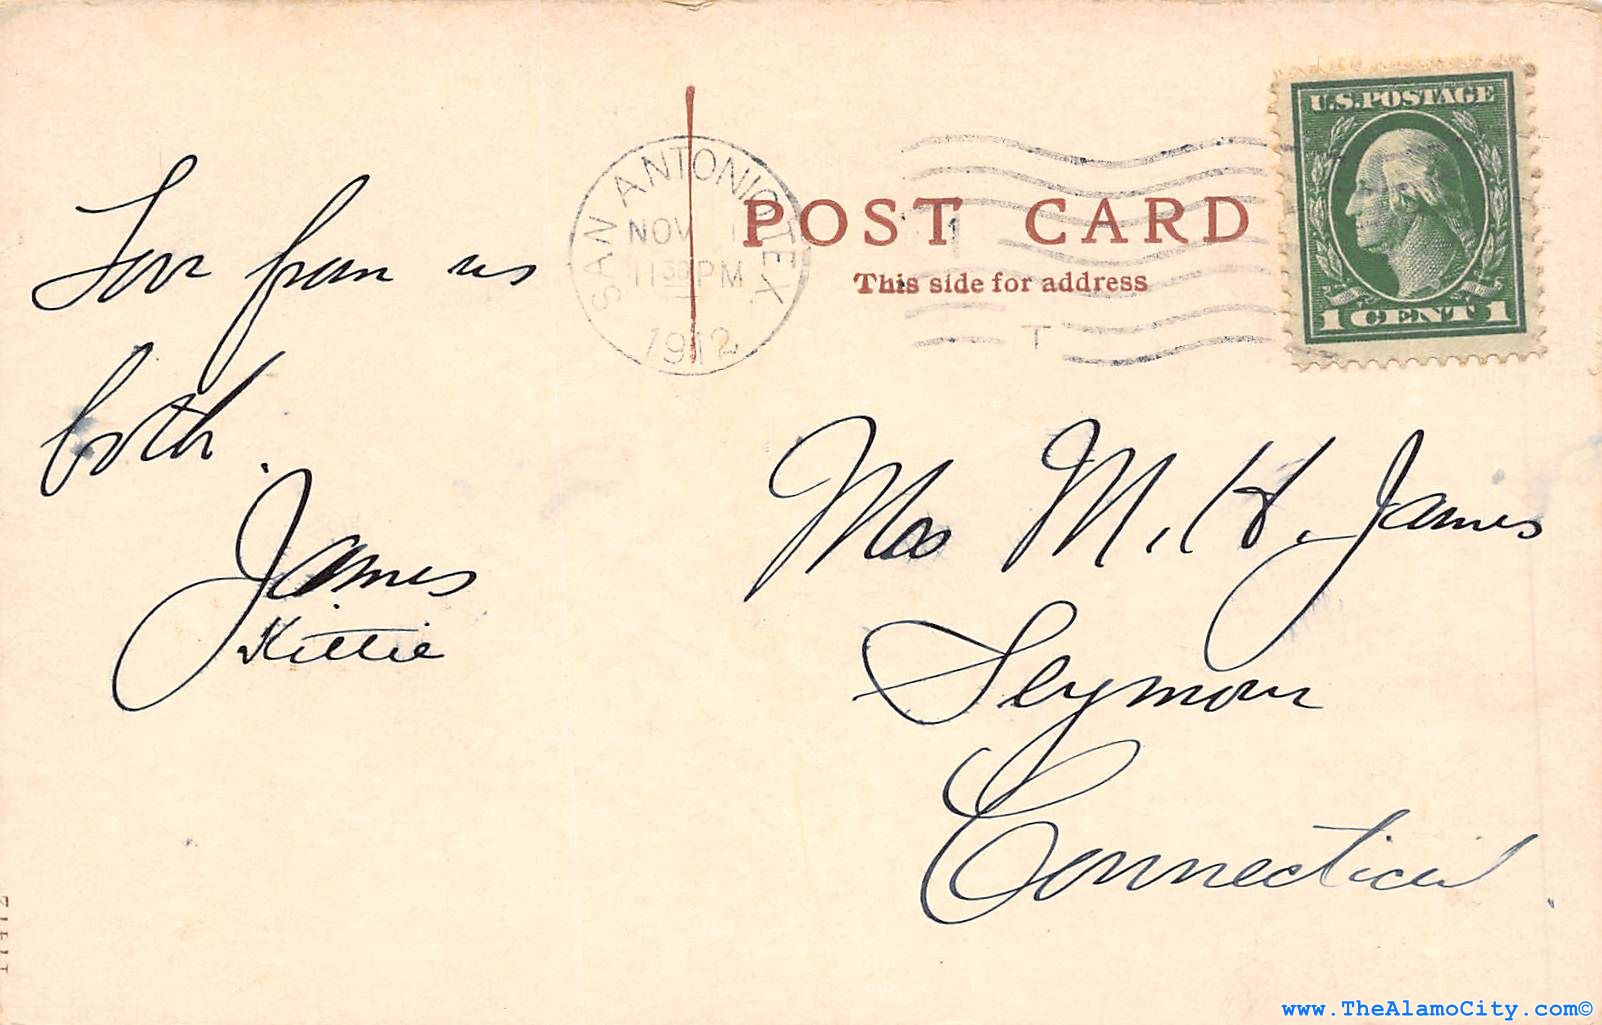 Love from us
both.
James
Kittie
SAN ANTONIO TEX.
NOV 1
11 30 PM
1912
T
POST CARD
This side for address
U.S. POSTAGE
1 CENT 1
Mrs M. H. James
Seymour
Connecticut.
www.TheAlamoCity.com©